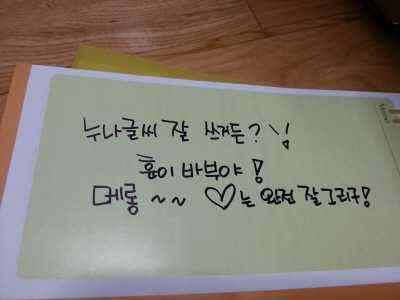 누나글씨 잘 쓰거든? \ㅣ
흄이 바부야!
메롱 ~~ ♡는 완전 잘그리구!
Memo